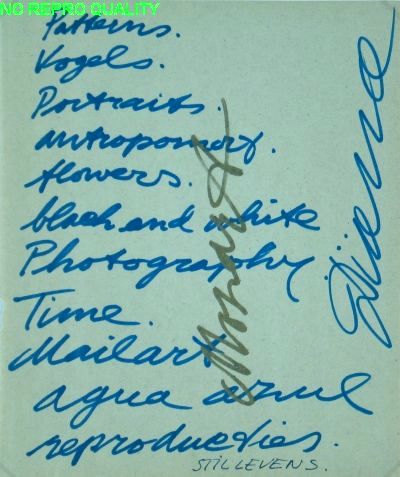 NO REPRO QUALITY
Patterns.
Vogels.
Portraits.
antropomorf.
flowers.
black and white
Photography
Time.
Mailart
agua azul
reproducties.
STILLEVENS.